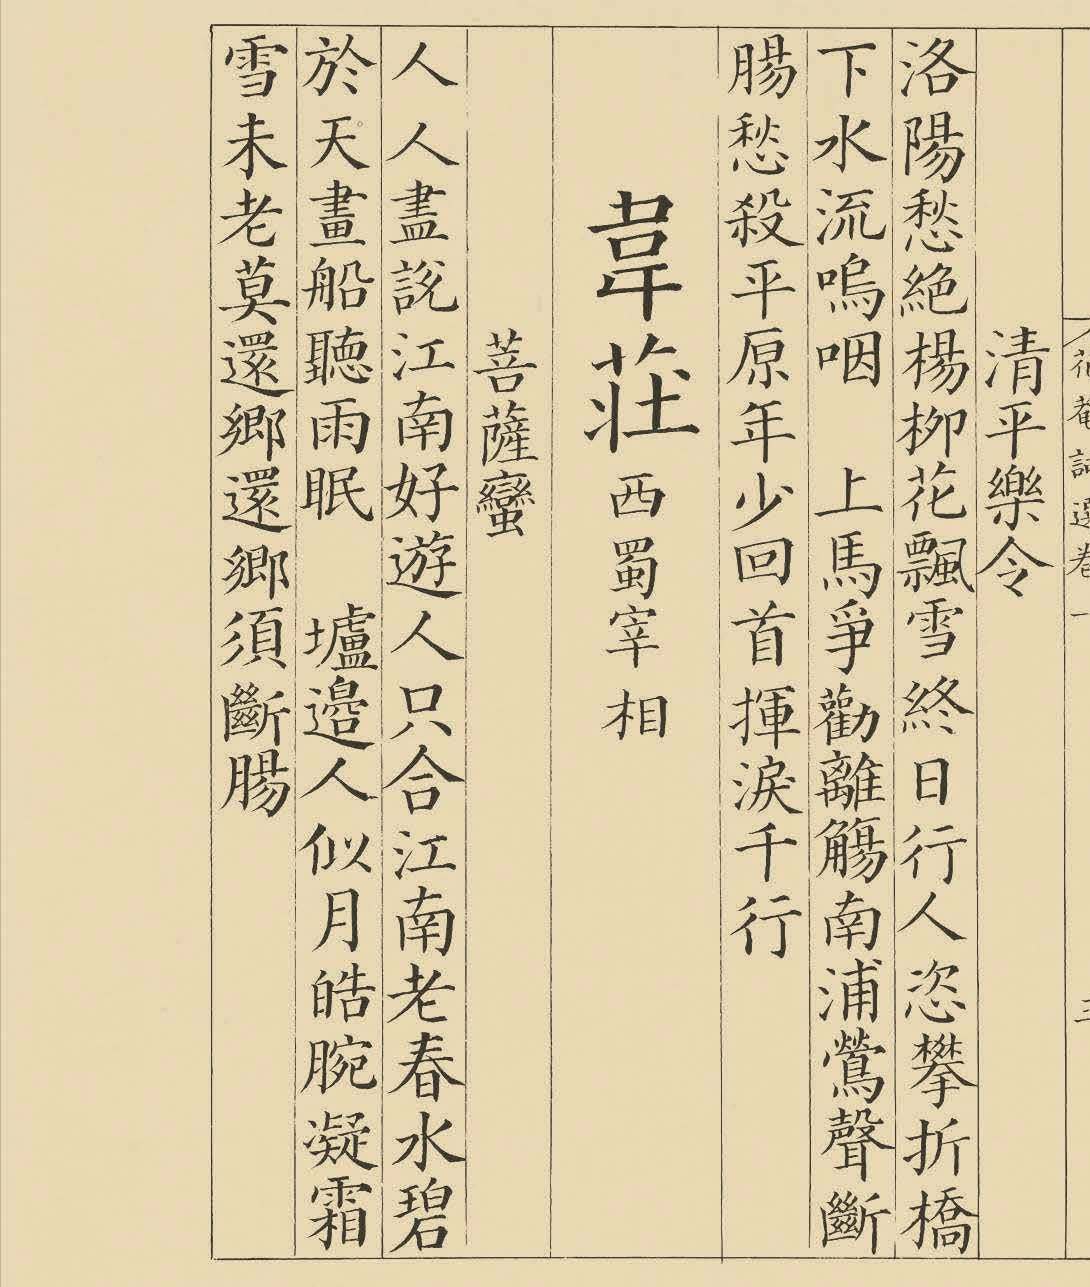 花菴詞選卷一 三
清平樂令
洛陽愁絶楊柳花飄雪終日行人恣攀折橋
下水流嗚咽　上馬爭勸離觴南浦鶯聲斷
腸愁殺平原年少回首揮淚千行
韋莊 西蜀宰相
菩薩蠻
人人盡說江南好遊人只合江南老春水碧
於天畫船聽雨眠　壚邊人似月皓腕凝霜
雪未老莫還鄉還鄉須斷腸